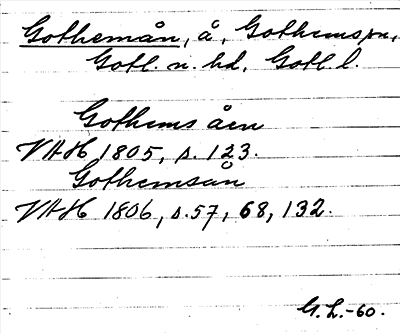 Gothemån, å, Gothems sn,
Gotl. n. hd, Gotl. l.
Gothems åen
VAH 1805, s. 123.
Gothemsån
VAH 1806, s. 57, 68, 132.
G. L. -60.